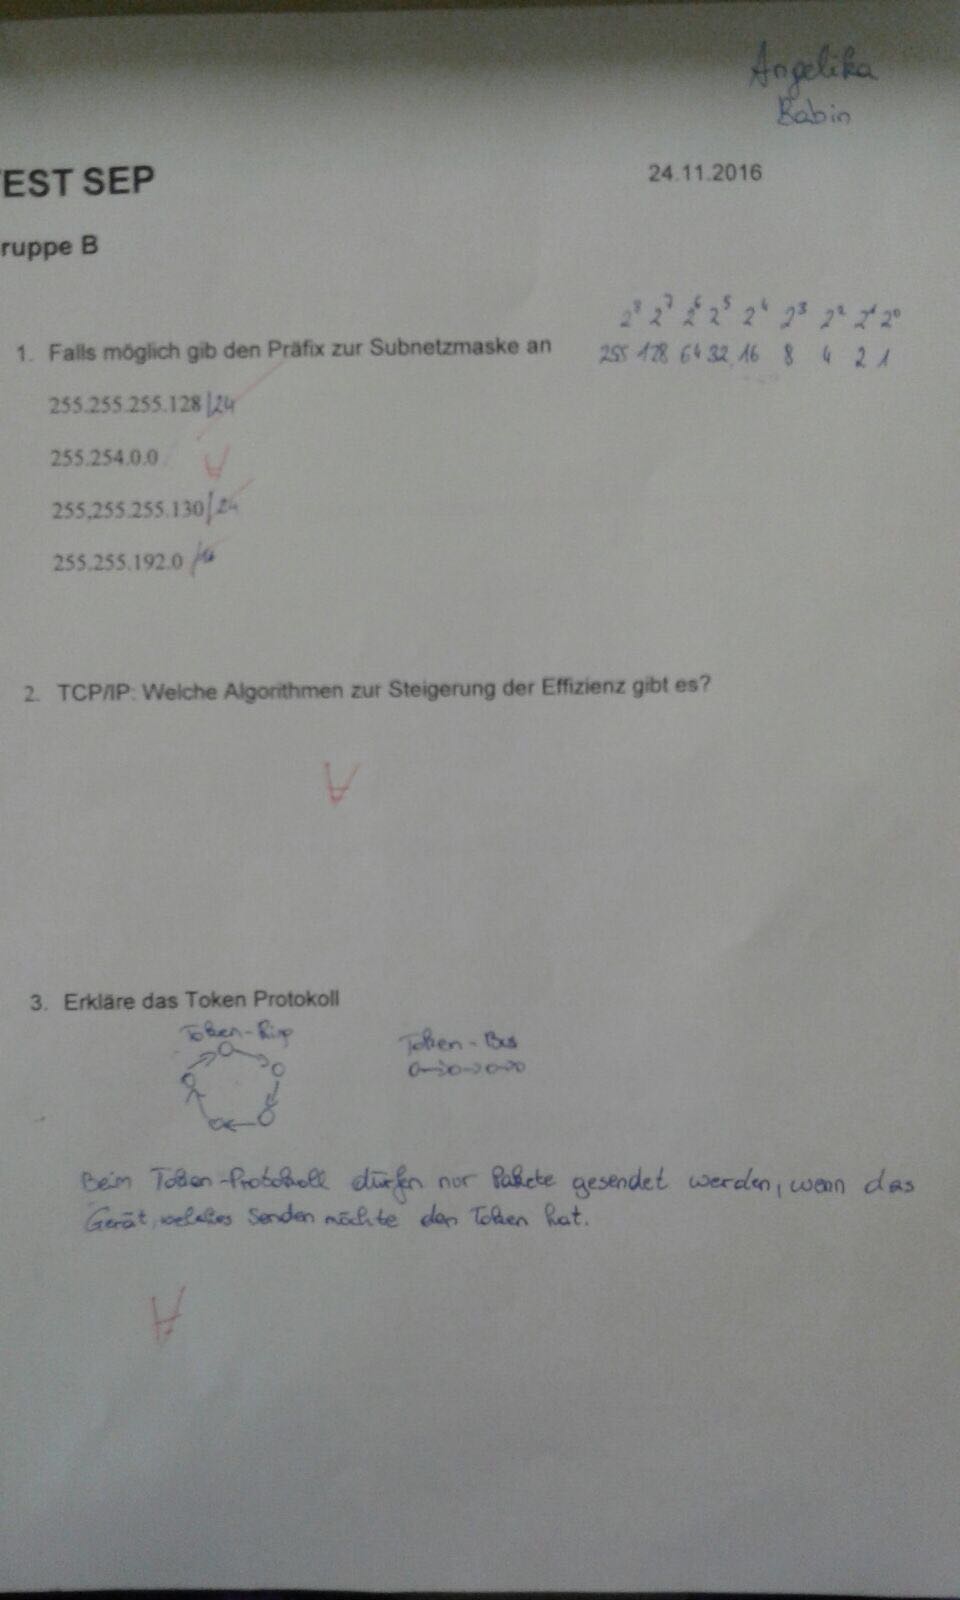 Angelika
Babin
TEST SEP
24.11.2016
ruppe B
2⁸ 2⁷ 2⁶ 2⁵ 2⁴ 2³ 2² 2¹ 2⁰
1. Falls möglich gib den Präfix zur Subnetzmaske an
255 128 64 32 16 8 4 2 1
255.255.255.128/24
255.254.0.0
255,255.255.130/24
255.255.192.0 /
2. TCP/IP: Welche Algorithmen zur Steigerung der Effizienz gibt es?
3. Erkläre das Token Protokoll
Token-Ring
Token-Bus
Beim Token-Protokoll dürfen nur Pakete gesendet werden, wenn das
Gerät, welches Senden möchte den Token hat.